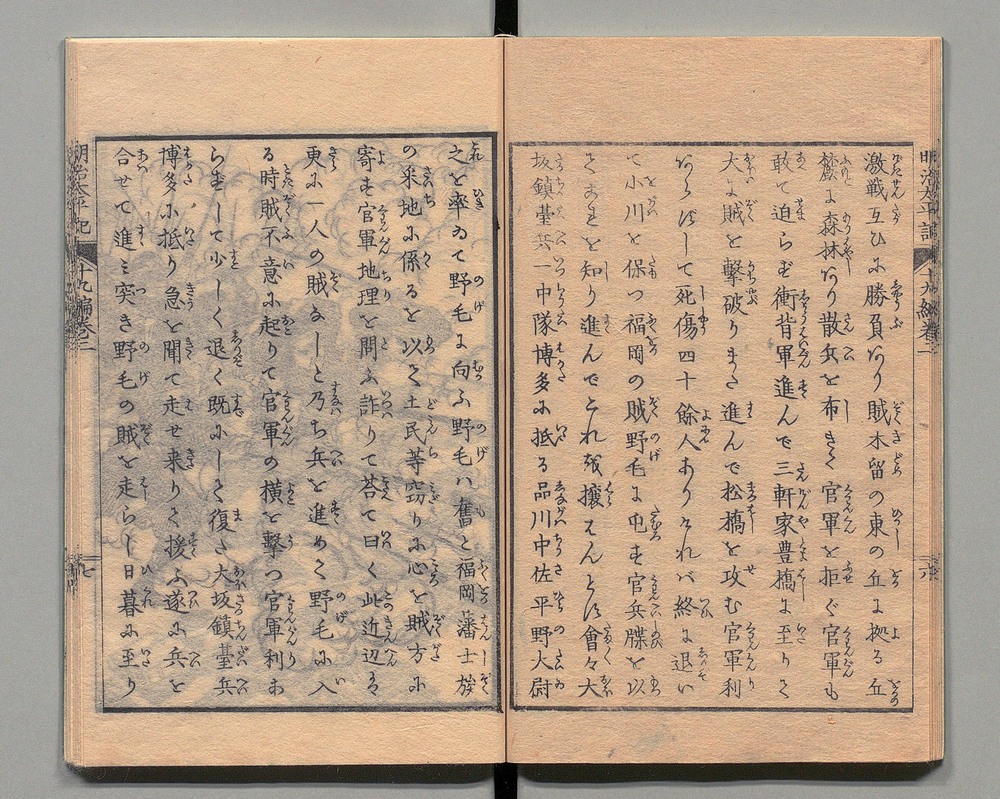 明治太平記 十九編巻二 六
激戦互ひに勝負あり賊木留の東の丘に拠る丘
麓に森林あり散兵を布きて官軍を拒ぐ官軍も
敢て迫らず衝背軍進んで三軒家豊橋に至りて
大に賊を撃破りまた進んで松橋を攻む官軍利
あらずして死傷四十餘人ありそれバ終に退い
て小川を保つ福岡の賊野毛に屯す官兵牒を以
てこれを知り進んでこれを攘はんとす會々大
坂鎮䑓兵一中隊博多に抵る品川中佐平野大尉
之を率ゐて野毛に向ふ野毛ハ舊と福岡藩士族
の采地に係るを以て土民等窃りに心を賊方に
寄す官軍地理を問ふ詐りて荅て曰く此近辺る
更に一人の賊なしと乃ち兵を進めて野毛に入
る時賊不意に起りて官軍の横を擊つ官軍利あ
らずして少しく退く既にして復た大坂鎮䑓兵
博多に抵り急を聞て走せ来りて援ふ遂に兵を
合せて進ミ突き野毛の賊を走らし日暮に至り
明治太平記 十九編巻二 七